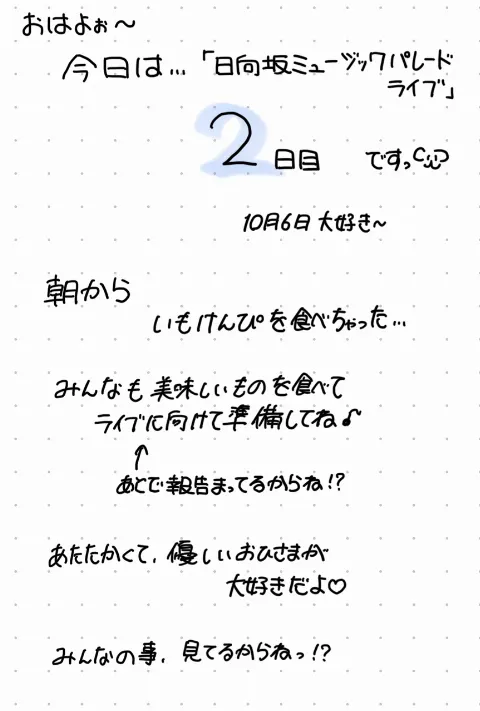 おはよぉ～
今日は…「日向坂ミュージックパレード
ライブ」
2日目 ですっ
10月6日 大好き～
朝から
いもけんぴを食べちゃった…
みんなも美味しいものを食べて
ライブに向けて準備してね♪
↑
あとで報告まってるからね!?
あたたかくて、優しいおひさまが
大好きだよ♡
みんなの事、見てるからねっ!?